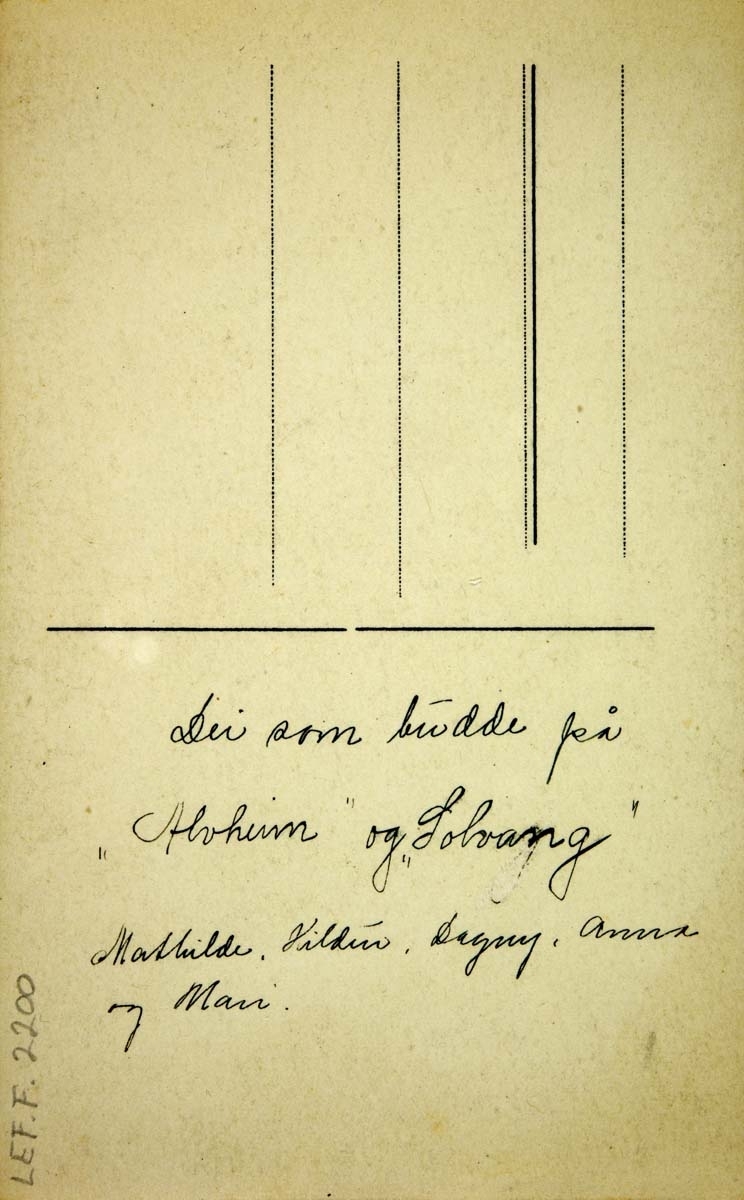 Dei som budde på
„Alvheim" og „Solvang"
Mathilde, Hildur, Dagny, Anna
og Mari.
LEF.F. 2200